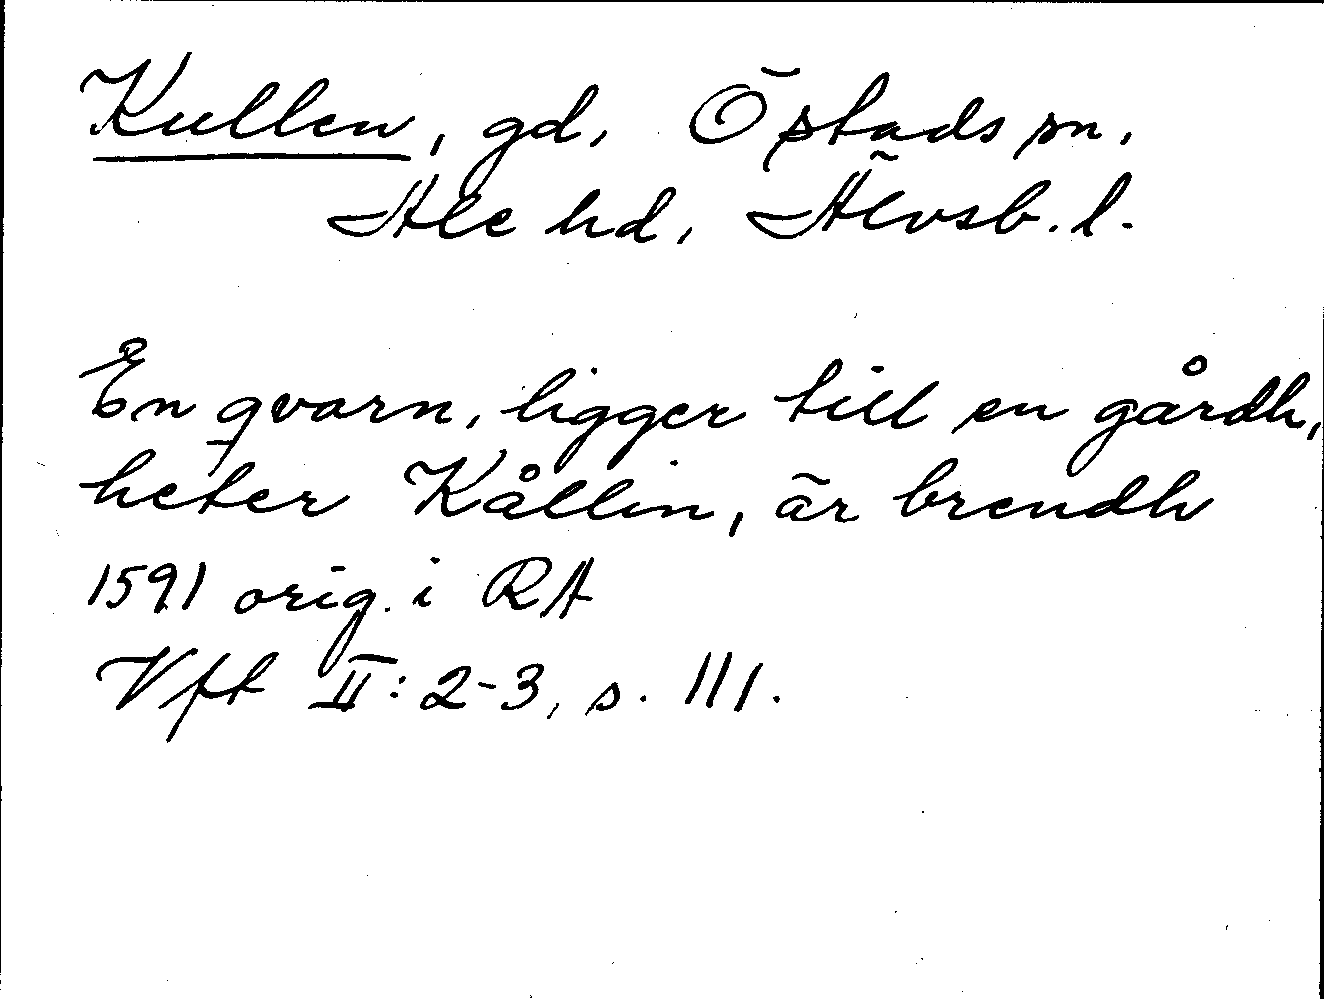 Kullen, gd, Östads sn,
Ale hd, Älvsb. l.
En qvarn, ligger till en gårdh,
heter Kållin, är brendh
1591 orig. i RA
Vft II: 2-3, s. 111.